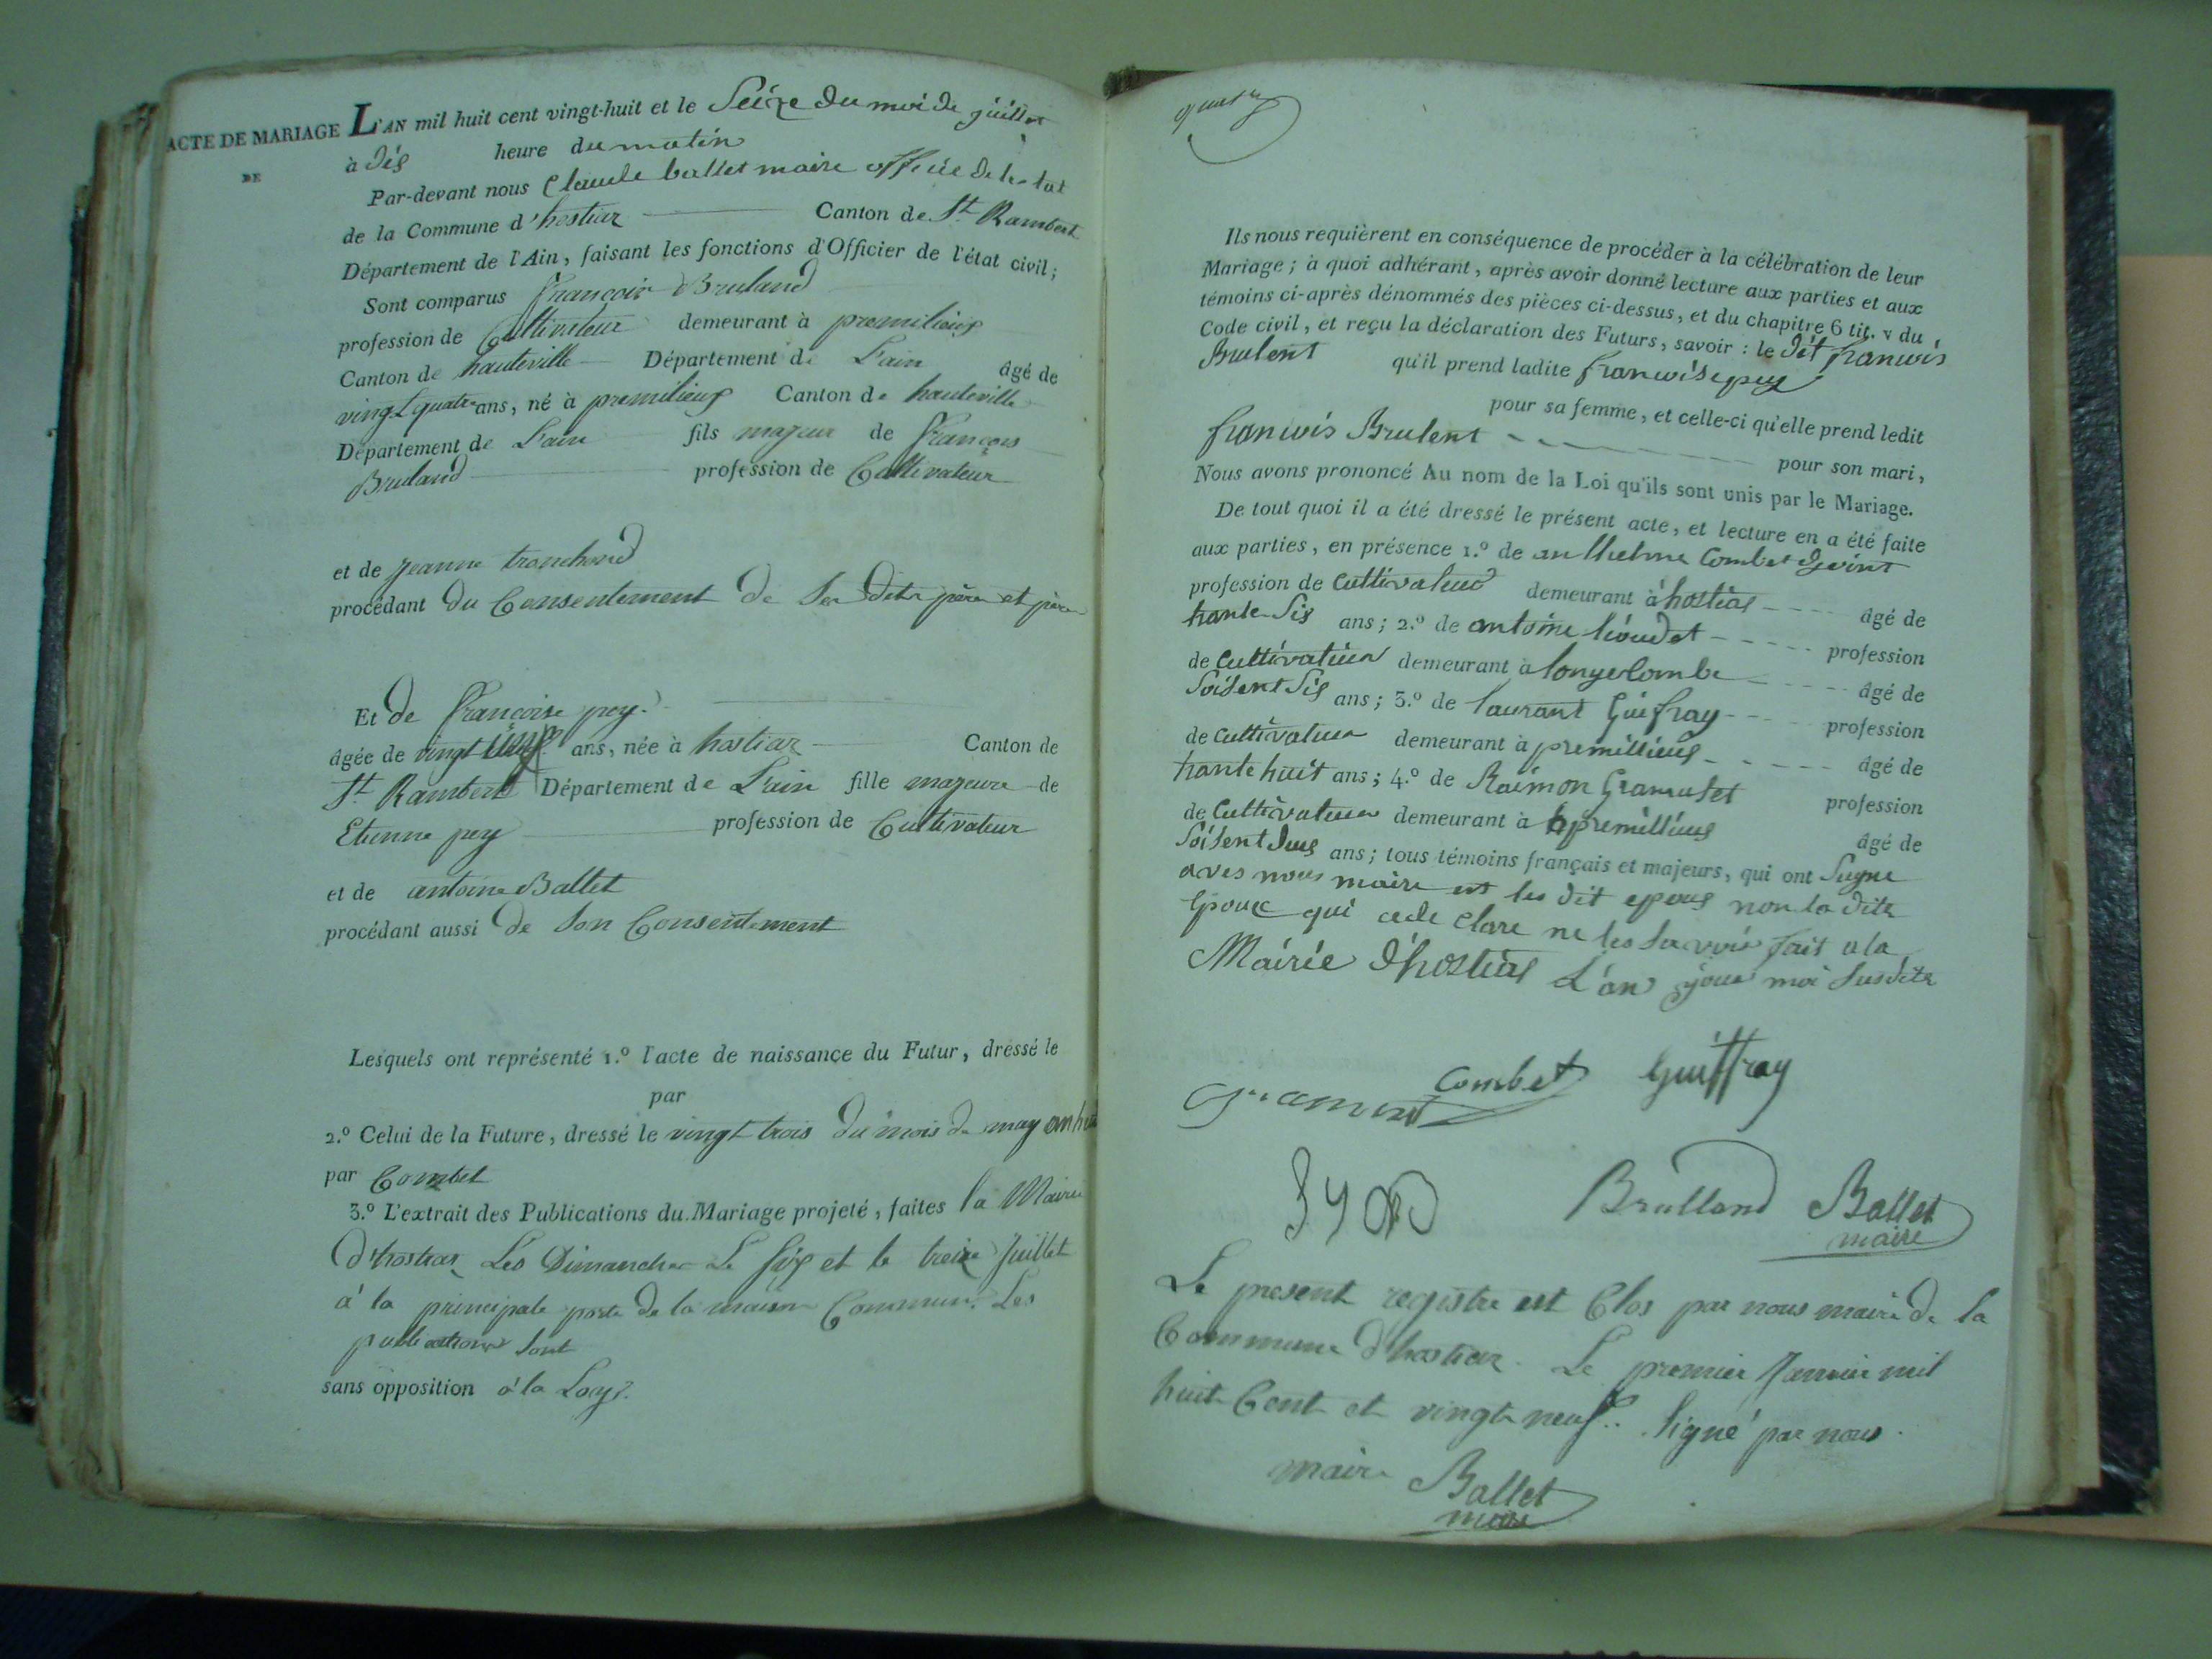 ACTE DE MARIAGE L'AN mil huit cent vingt-huit et le Seize du moi de juillet
DE
à dis heure du matin
Par-devant nous Claude ballet maire
de la Commune d'hostiaz Canton de St. Rambert
Département de l'Ain, faisant les fonctions d'Officier de l'état civil;
Sont comparus François Bruland
profession de Cultivateur demeurant à premilieux
Canton de hauteville Département de L'ain âgé de
vingt quatre ans, né à premilieux Canton de hauteville
Département de L'ain fils majeur de François
Bruland profession de Cultivateur
et de jeanne tronchond
procédant du Consentement de Ses dits père et
Et de Françoise pey
âgée de vingt ans, née à hostiaz Canton de
St. Rambert Département de L'ain fille majeure de
Etienne pey profession de Cultivateur
et de antoine Ballet
procédant aussi de Son Consentement
Lesquels ont représenté 1.º l'acte de naissance du Futur, dressé le
par
2.º Celui de la Future, dressé le vingt trois du mois de may an
par Combet
3.º L'extrait des Publications du Mariage projeté, faites la Mairie
d'hostiaz Les Dimanches Le Six et le treize Juillet
à la principale porte de la maison Commune. Les
publications Sont
sans opposition à la Loy.
Ils nous requièrent en conséquence de procéder à la célébration de leur
Mariage; à quoi adhérant, après avoir donné lecture aux parties et aux
témoins ci-après dénommés des pièces ci-dessus, et du chapitre 6 tit. v du
Code civil, et reçu la déclaration des Futurs, savoir: le dit francois
Brulent qu'il prend ladite
pour sa femme, et celle-ci qu'elle prend ledit
francois Brulent pour son mari,
Nous avons prononcé Au nom de la Loi qu'ils sont unis par le Mariage.
De tout quoi il a été dressé le présent acte, et lecture en a été faite
aux parties, en présence 1.º de anthelme Combet
profession de Cultivateur demeurant à hostias âgé de
trante Sis ans; 2.º de antoine profession
de Cultivateur demeurant à longecombe âgé de
Soisent Sis ans; 3.º de laurant Guifray profession
de Cultivateur demeurant à premillieus âgé de
trante huit ans; 4.º de Raimon profession
de Cultivateur demeurant à premillieus âgé de
Soisent deus ans; tous témoins français et majeurs, qui ont Signe
aves nous maire et les dit epous non la dite
Epouse qui a de Clare ne les Savoir fait a la
Mairie d'hostias L'an jour moi Susdite
Combet Guiffray
Brulland Ballet
maire
Le present registre est Clos par nous maire de la
Commune d'hostiaz. Le premier Janvier mil
huit Cent et vingt neuf.. Signé par nous.
maire Ballet
maire